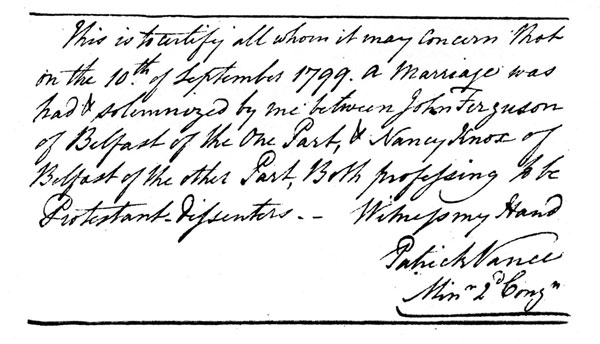 This is to certify all whom it may Concern that
on the 10.th of September 1799. a Marriage was
had & solemnized by me between John Ferguson
of Belfast of the One Part, & Nancy Knox of
Belfast of the other Part, Both professing to be
Protestant-Dissenters. - Witness my Hand
Patrick Vance
Minr 2d Congn